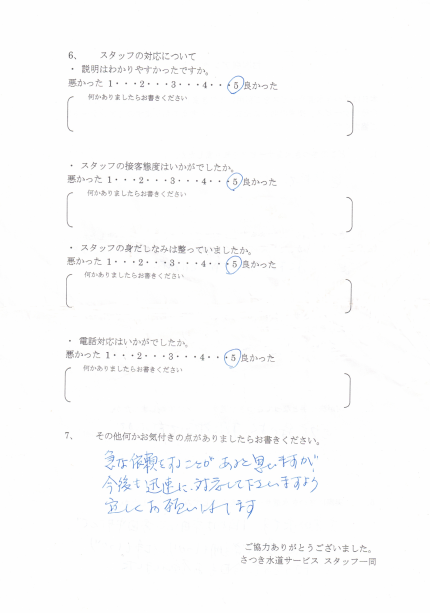 6、 スタッフの対応について
・ 説明はわかりやすかったですか。
悪かった 1・・・2・・・3・・・4・・・5 良かった
何かありましたらお書きください
・ スタッフの接客態度はいかがでしたか。
悪かった 1・・・2・・・3・・・4・・・5 良かった
何かありましたらお書きください
・ スタッフの身だしなみは整っていましたか。
悪かった 1・・・2・・・3・・・4・・・5 良かった
何かありましたらお書きください
・ 電話対応はいかがでしたか。
悪かった 1・・・2・・・3・・・4・・・5 良かった
何かありましたらお書きください
7、 その他何かお気付きの点がありましたらお書きください。
急な依頼をすることがあると思いますが
今後も迅速に対応して下さいますよう
宜しくお願いします
ご協力ありがとうございました。
さつき水道サービス スタッフ一同